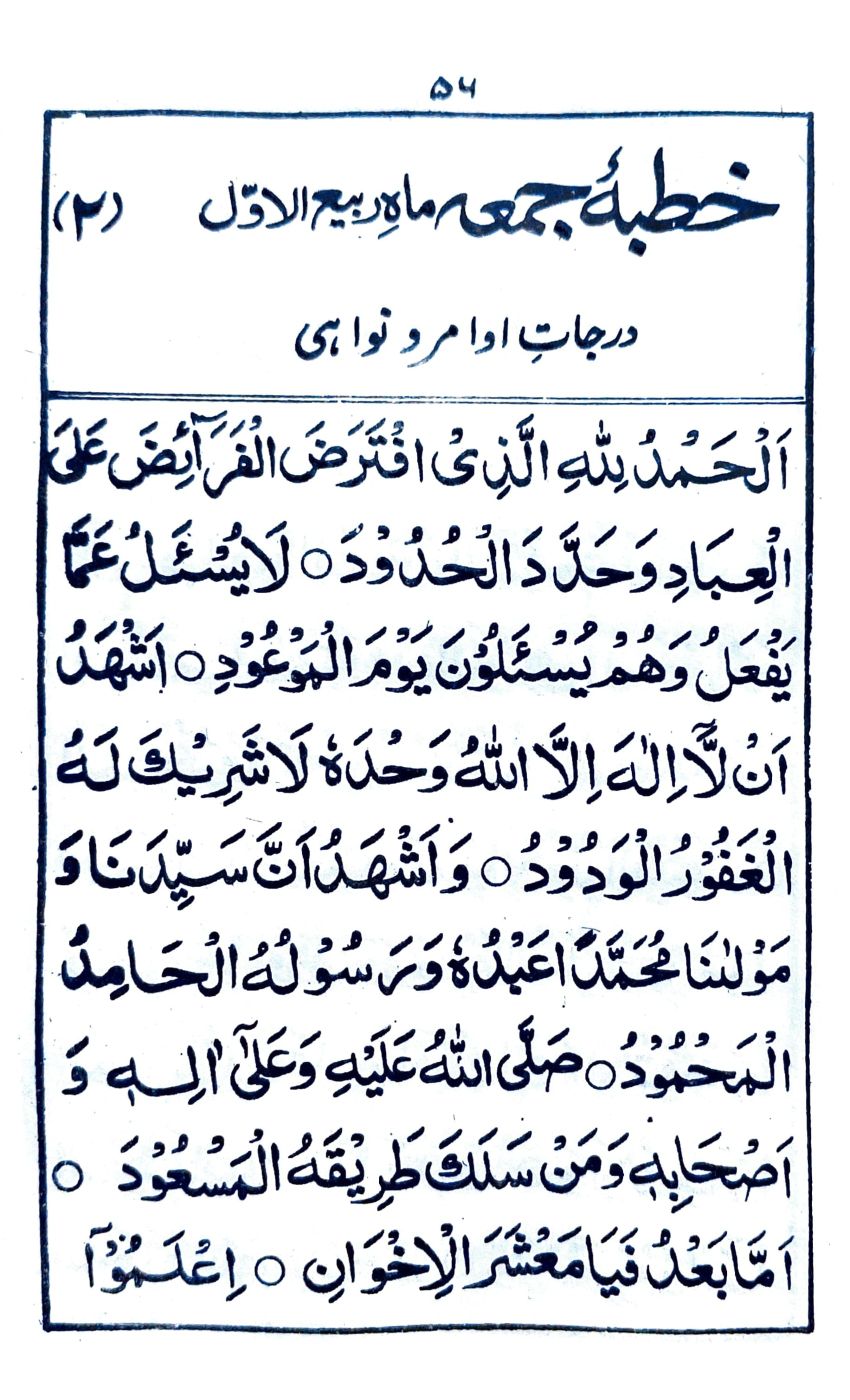 ۵۶
خطبۂ جمعہ ماہِ ربیع الاوّل (۲)
درجاتِ اوامر و نواہی
اَلْحَمْدُ لِلّٰهِ الَّذِیْ افْتَرَضَ الْفَرَآئِضَ عَلَی
الْعِبَادِ وَحَدَّدَ الْحُدُوْدَ ○ لَا یُسْئَلُ عَمَّا
یَفْعَلُ وَهُمْ یُسْئَلُوْنَ یَوْمَ الْمَوْعُوْدِ ○ اَشْهَدُ
اَنْ لَّآ اِلٰهَ اِلَّا اللّٰهُ وَحْدَهٗ لَا شَرِیْكَ لَهُ
الْغَفُوْرُ الْوَدُوْدُ ○ وَ اَشْهَدُ اَنَّ سَیِّدَنَا وَ
مَوْلٰىنَا مُحَمَّدًا عَبْدُهٗ وَ رَسُوْلُهُ الْحَامِدُ
الْمَحْمُوْدُ ○ صَلَّی اللّٰهُ عَلَیْهِ وَعَلٰٓی اٰلِهٖ وَ
اَصْحَابِهٖ وَمَنْ سَلَكَ طَرِیْقَهُ الْمَسْعُوْدَ ○
اَمَّا بَعْدُ فَیَا مَعْشَرَ الْاِخْوَانِ ○ اِعْلَمُوْآ